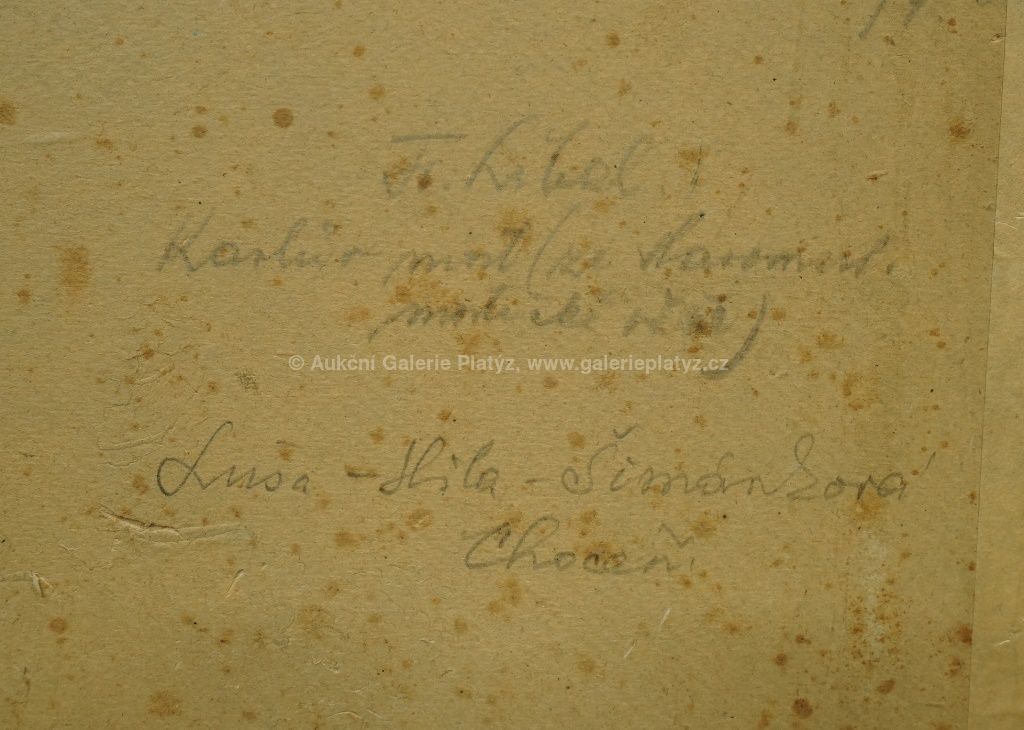 Fr. Líbal.
Karlův most (ze staroměst.
mostecké věže)
© Aukční Galerie Platýz, www.galerieplatyz.cz
Luša - Híla - Šimánková
Choceň.